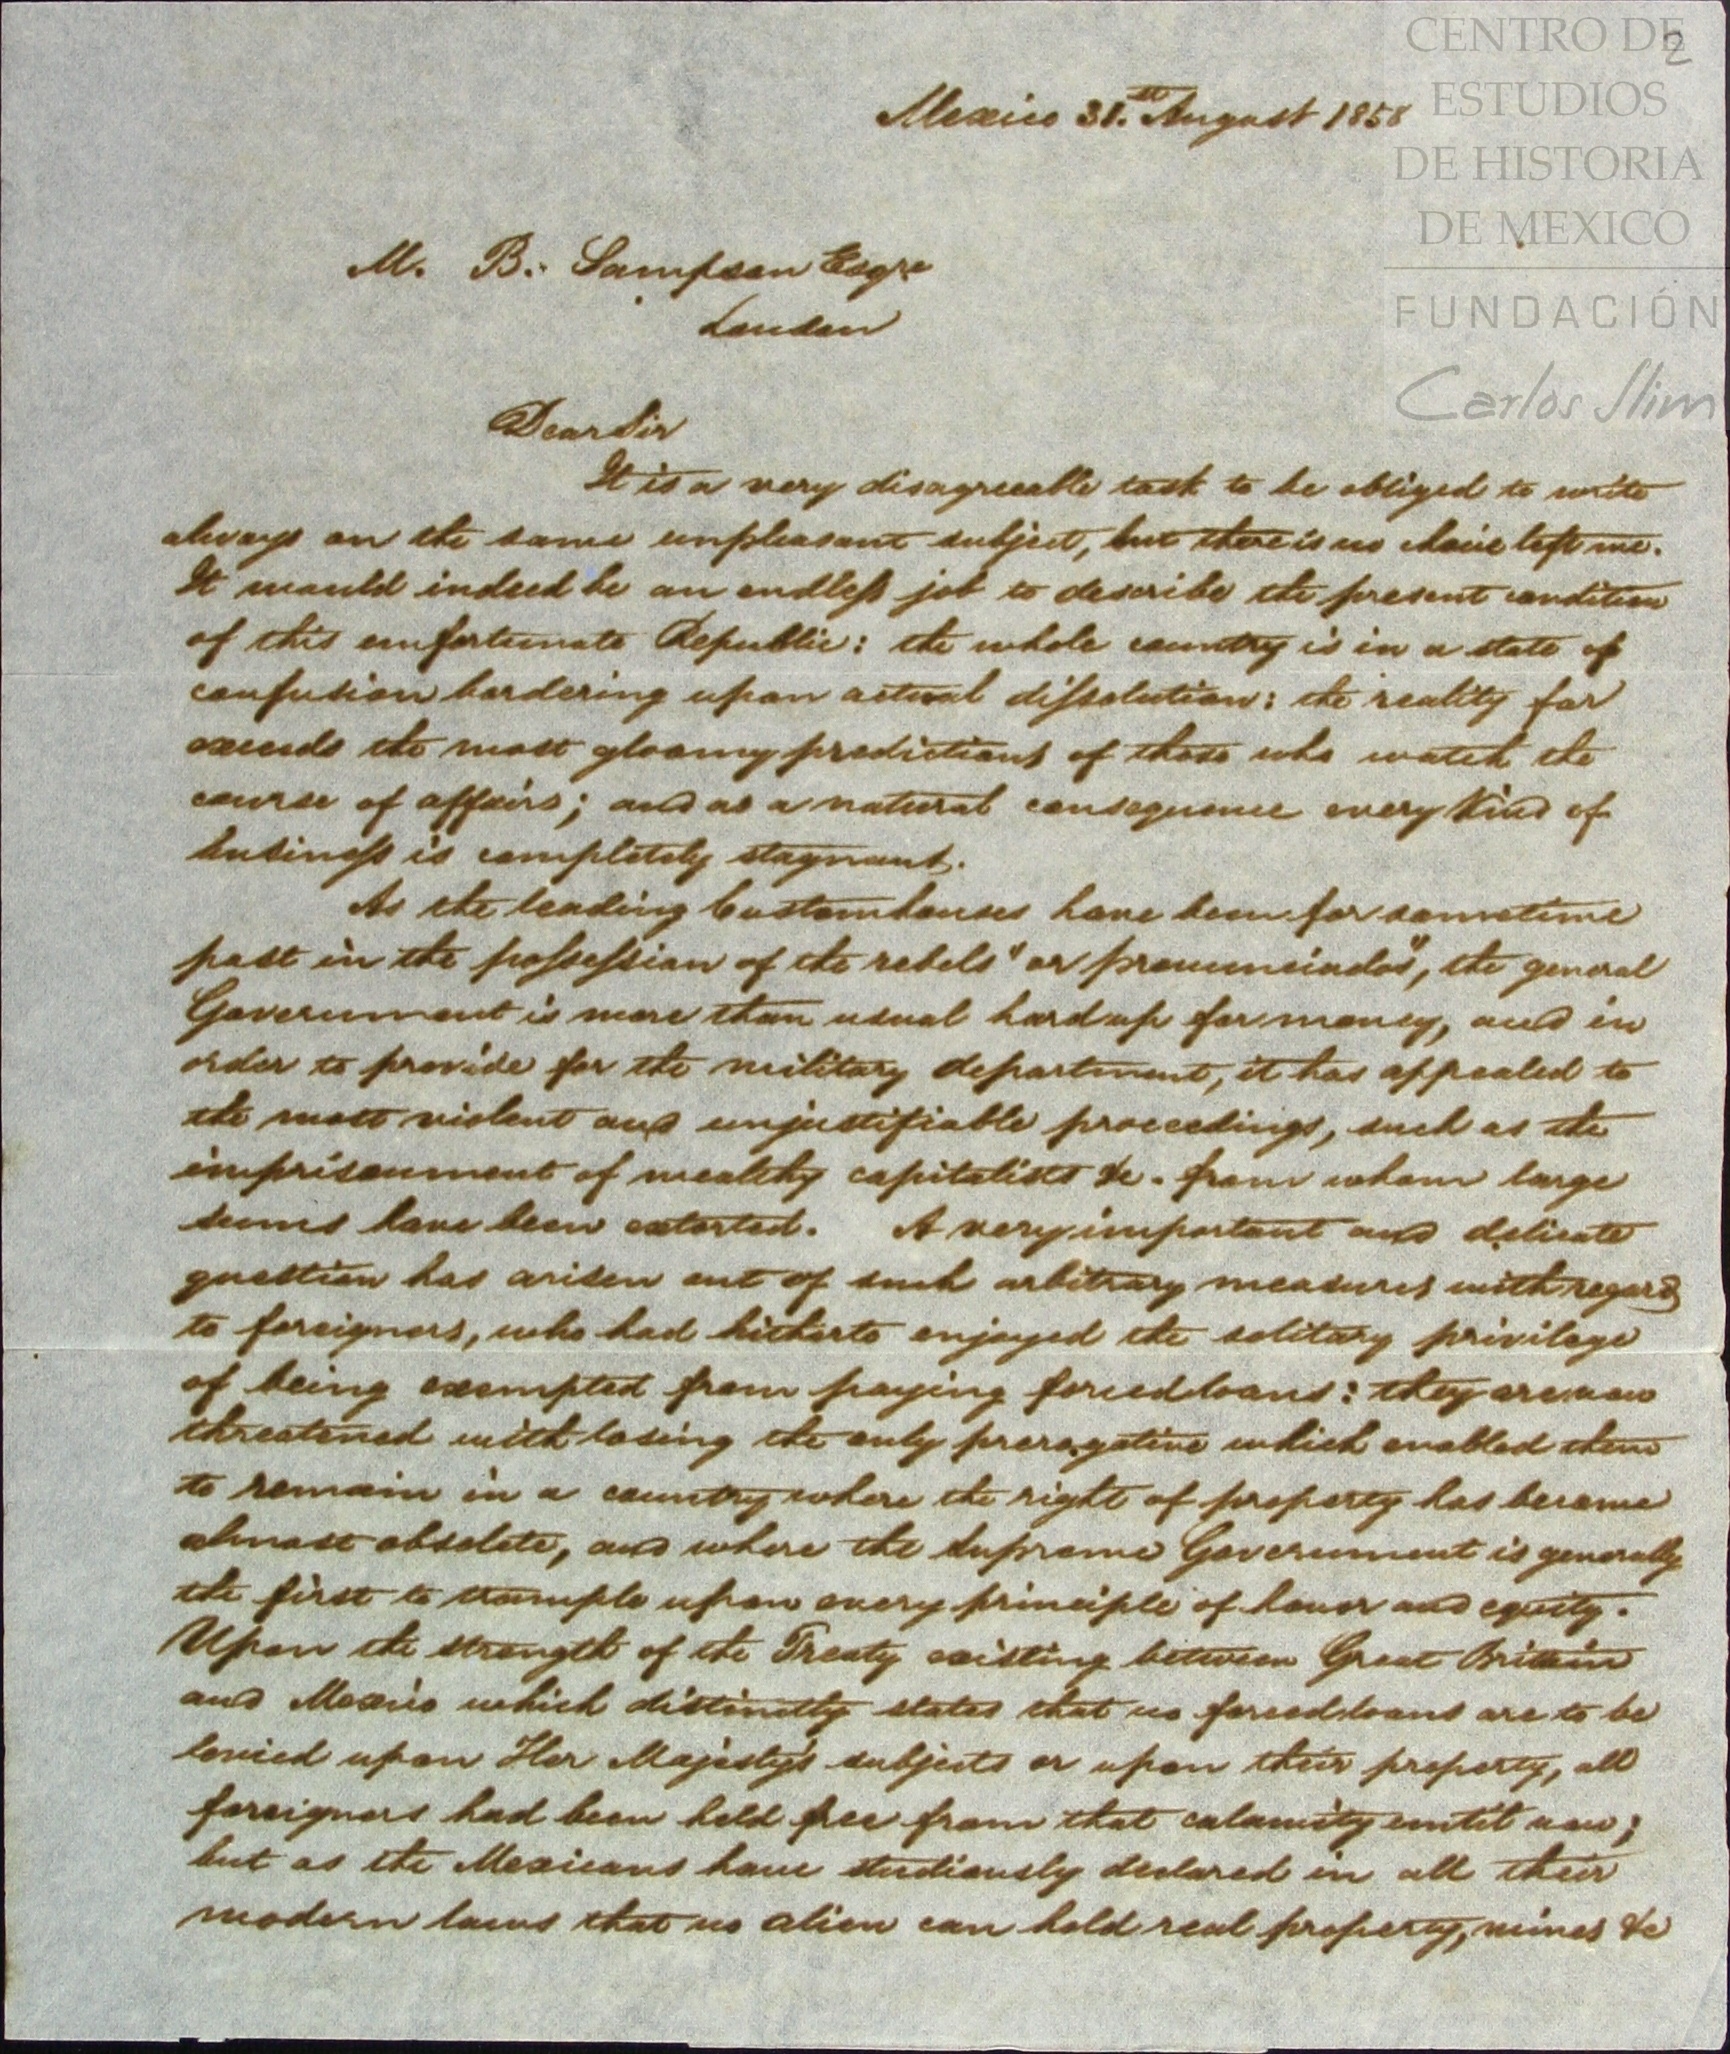 CENTRO DE
ESTUDIOS
DE HISTORIA
DE MEXICO
FUNDACIÓN
Carlos Slim
2
Mexico 31.st August 1858
M. B. Sampson Esqre
London
Dear Sir
It is a very disagreeable task to be obliged to write
always on the same unpleasant subject, but there is no choice left me.
It would indeed be an endless job to describe the present condition
of this unfortunate Republic: the whole country is in a state of
confusion bordering upon actual dissolution: the reality far
exceeds the most gloomy predictions of those who watch the
course of affairs; and as a natural consequence every kind of
business is completely stagnant.
As the leading Customhouses have been for sometime
past in the possession of the rebels "or pronunciados", the general
Government is more than usual hard up for money, and in
order to provide for the military department, it has appealed to
the most violent and unjustifiable proceedings, such as the
imprisonment of wealthy capitalists &c. from whom large
sums have been extorted. A very important and delicate
question has arisen out of such arbitrary measures with regard
to foreigners, who had hitherto enjoyed the solitary privilege
of being exempted from paying forced loans: they are now
threatened with losing the only prerogative which enabled them
to remain in a country where the right of property has become
almost obsolete, and where the Supreme Government is generally
the first to trample upon every principle of honor and equity.
Upon the strength of the Treaty existing between Great Britain
and Mexico which distinctly states that no forced loans are to be
levied upon Her Majesty's subjects or upon their property, all
foreigners had been held free from that calamity until now;
but as the Mexicans have studiously declared in all their
modern laws that no alien can hold real property, mines &c